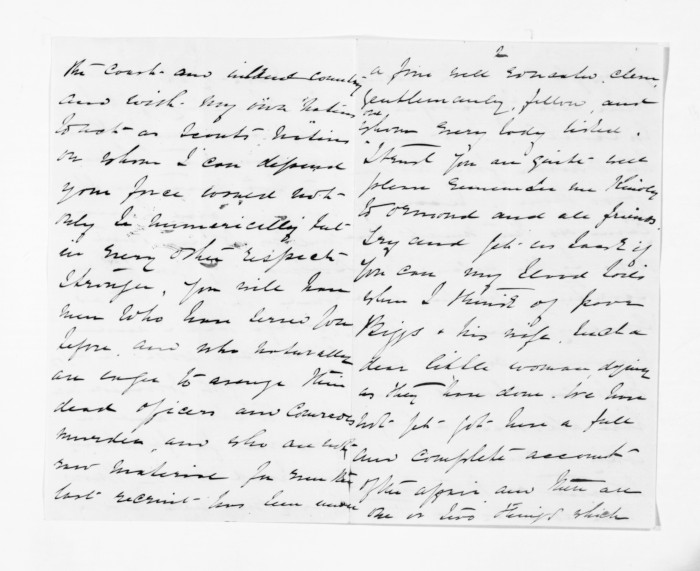 the coast and inland country
and with my own Natives
to act as scouts, Natives
on whom I can depend
your force would not
only be numerically but
in every other respect
stronger. You will have
men who have served you
before, and who naturally
are eager to avenge their
dead officers and Comrades
murder, and who are not
raw material for even the
last recruit has been under
2
a fine well educated, clean,
gentlemanly, fellow, and
one whom every body liked.
I trust you are quite well
please remember me kindly
to Ormond and all friends
Try and get us back if
you can my blood boils
when I think of poor
Biggs & his wife. Such a
dear little woman, dying
as they have done. We have
not yet got here a full
and complete account
of the affair and there are
one or two things which